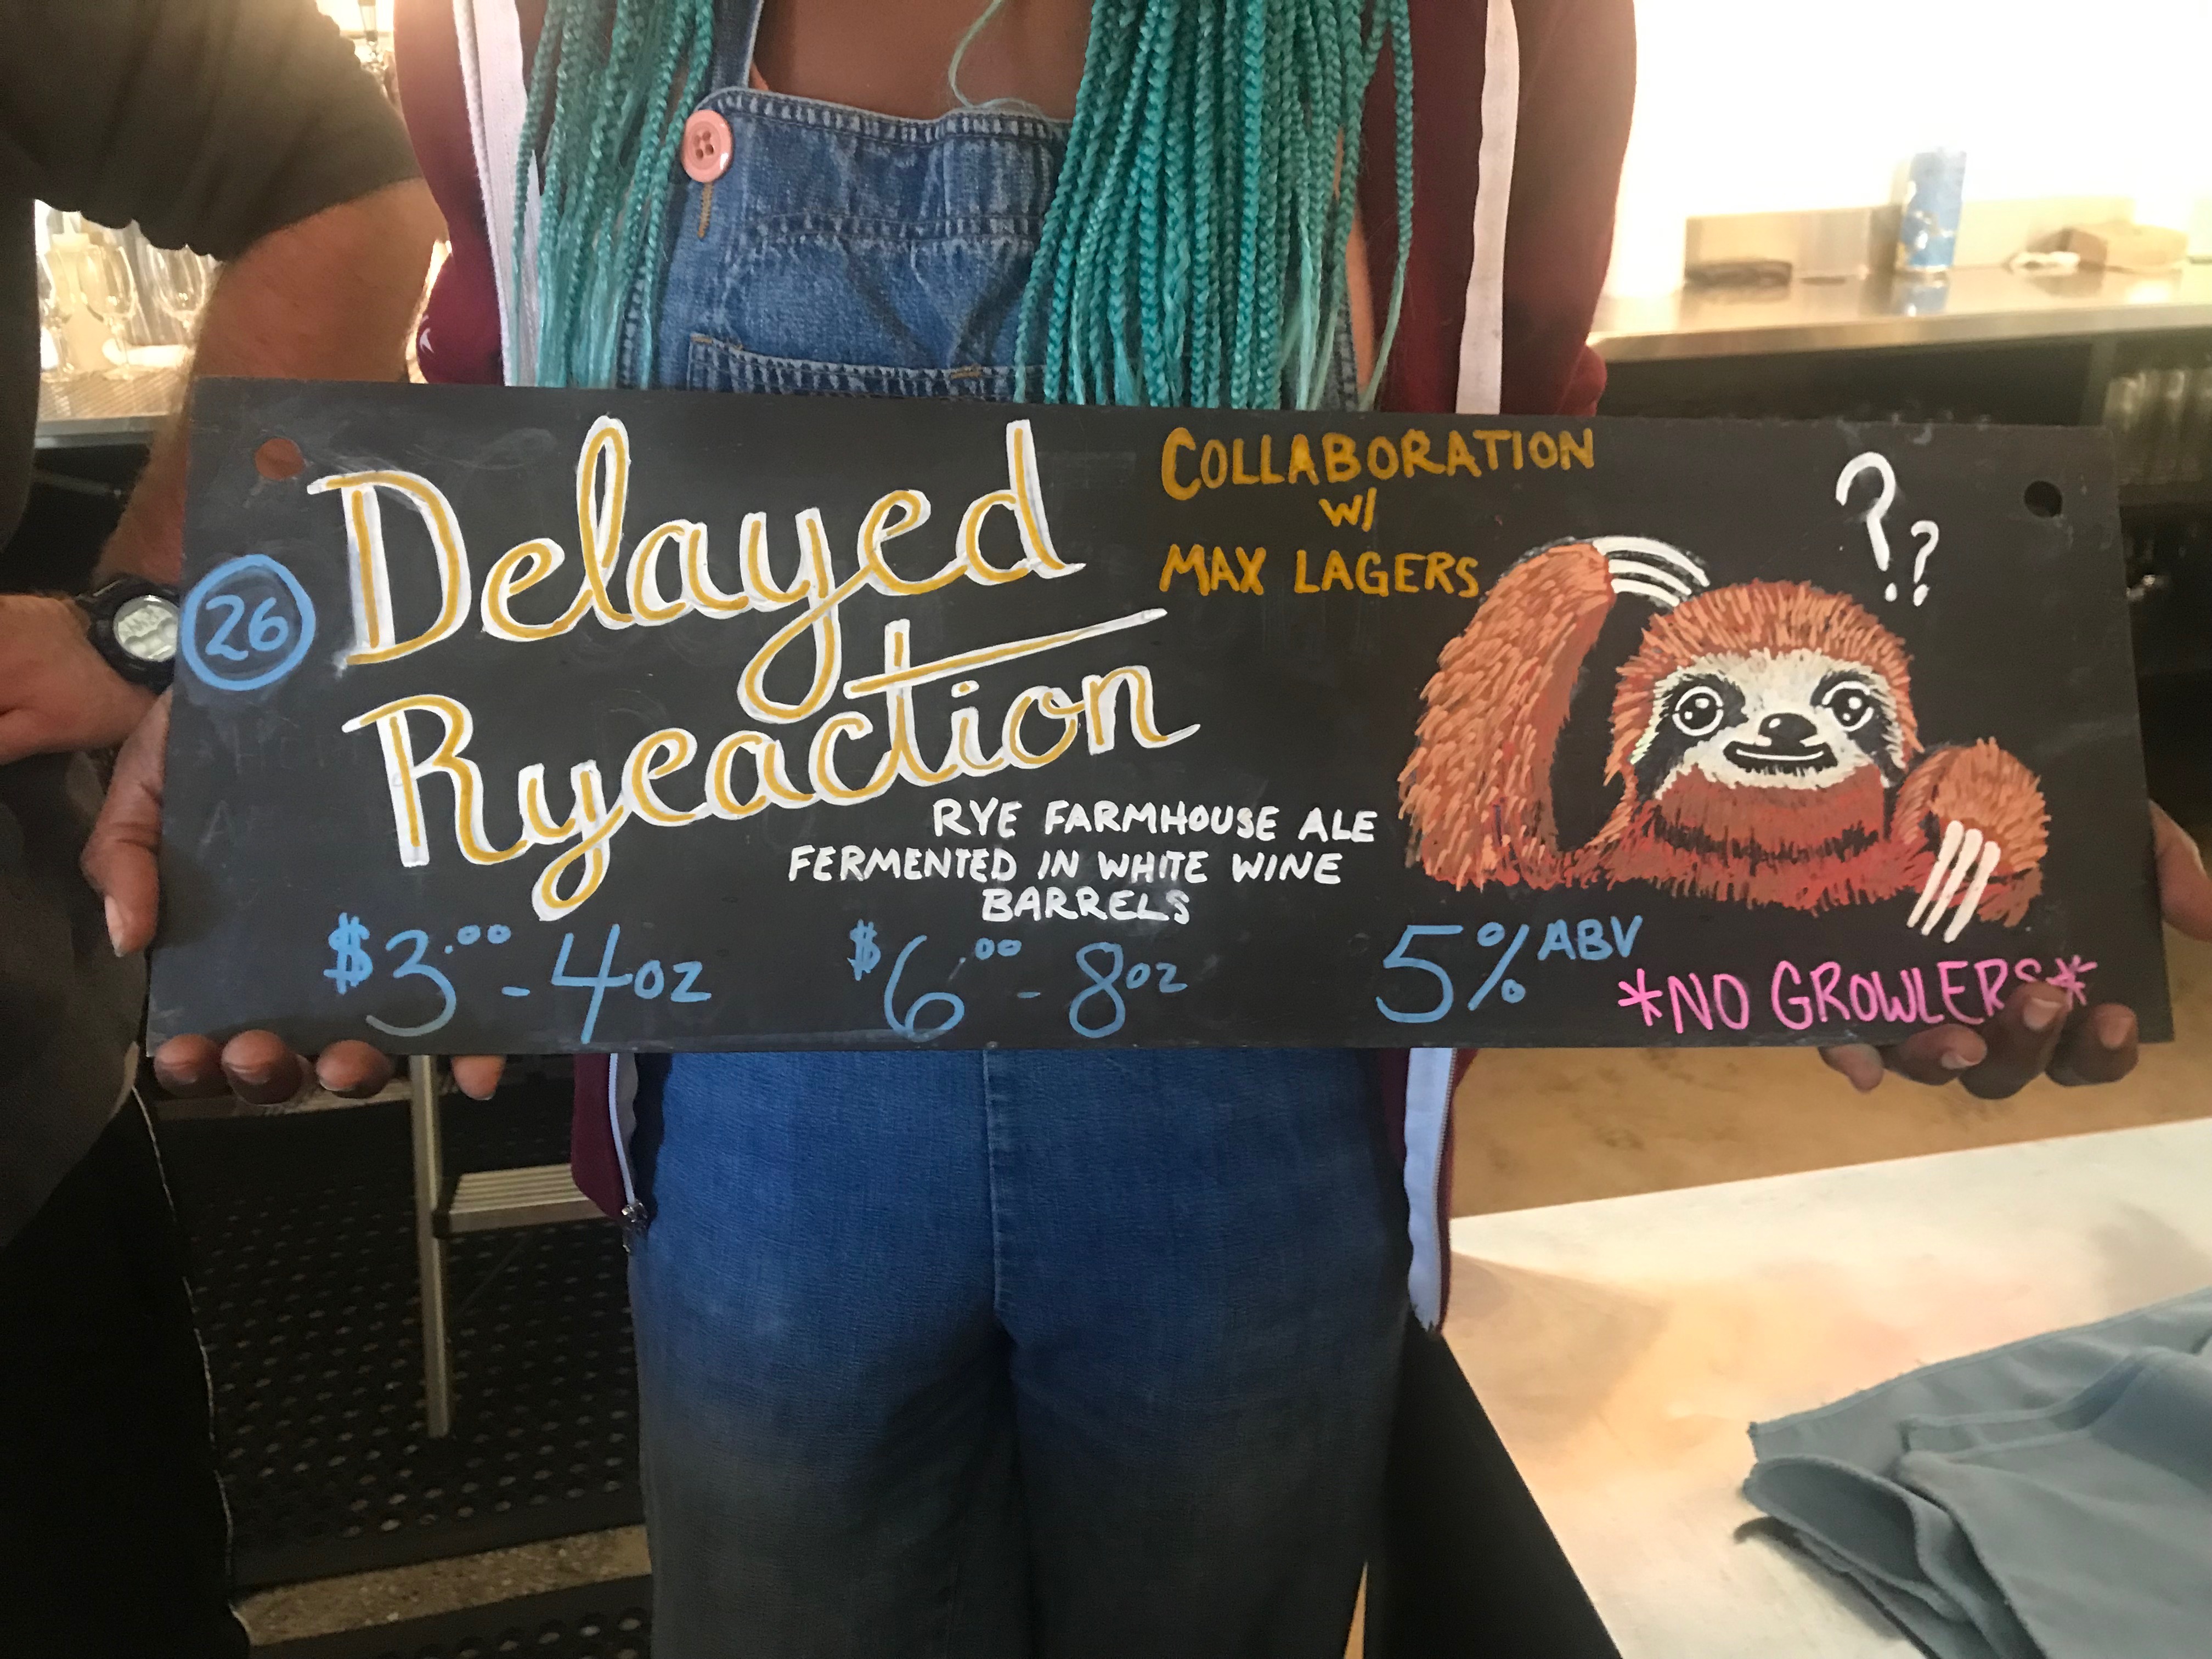 26
Delayed
Ryeaction
COLLABORATION
W/
MAX LAGERS
??
RYE FARMHOUSE ALE
FERMENTED IN WHITE WINE
BARRELS
$3.00 - 4oz
$6.00 - 8oz
5% ABV
*NO GROWLERS*